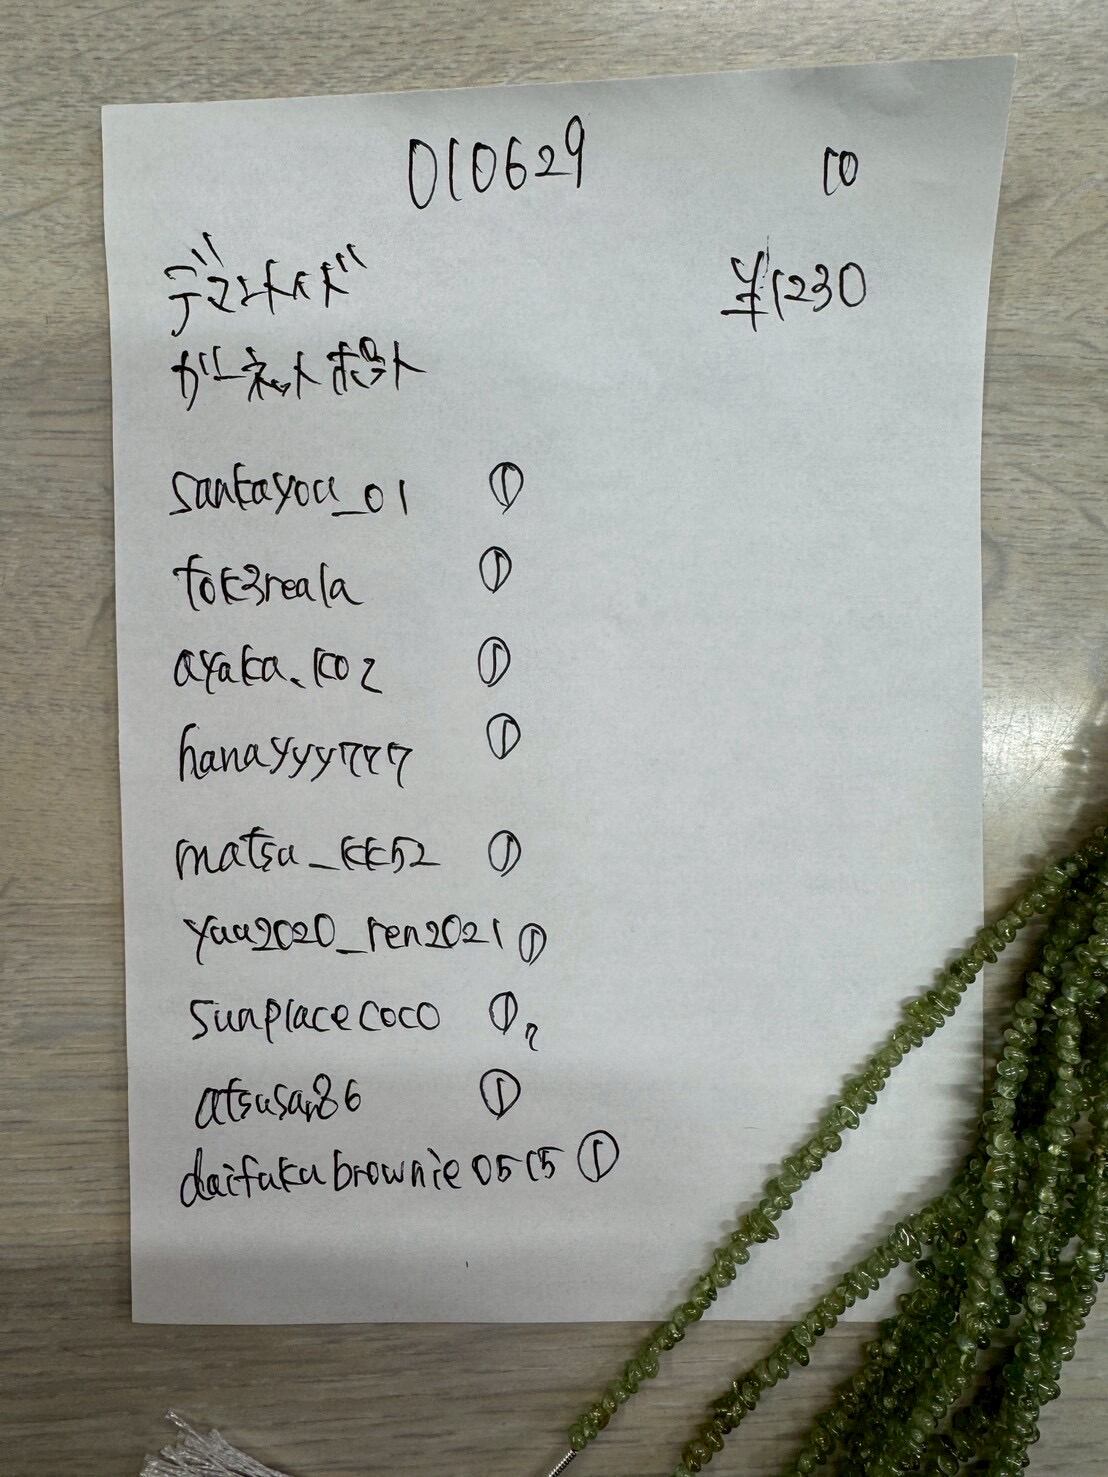 010629 10
デマントイド ¥1230
ガーネットポット
sankayou_01 ①
tok3reala ①
ayaka.k02 ①
hanayyy777 ①
matsu_kk52 ①
yaa2020_ren2021 ①
sunplacecoco ①
atsusan86 ①
daifukubrownie0515 ①